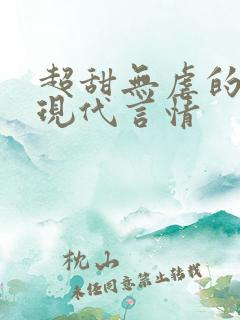 超甜無虐的
現代言情
枕山
未经同意禁止转载